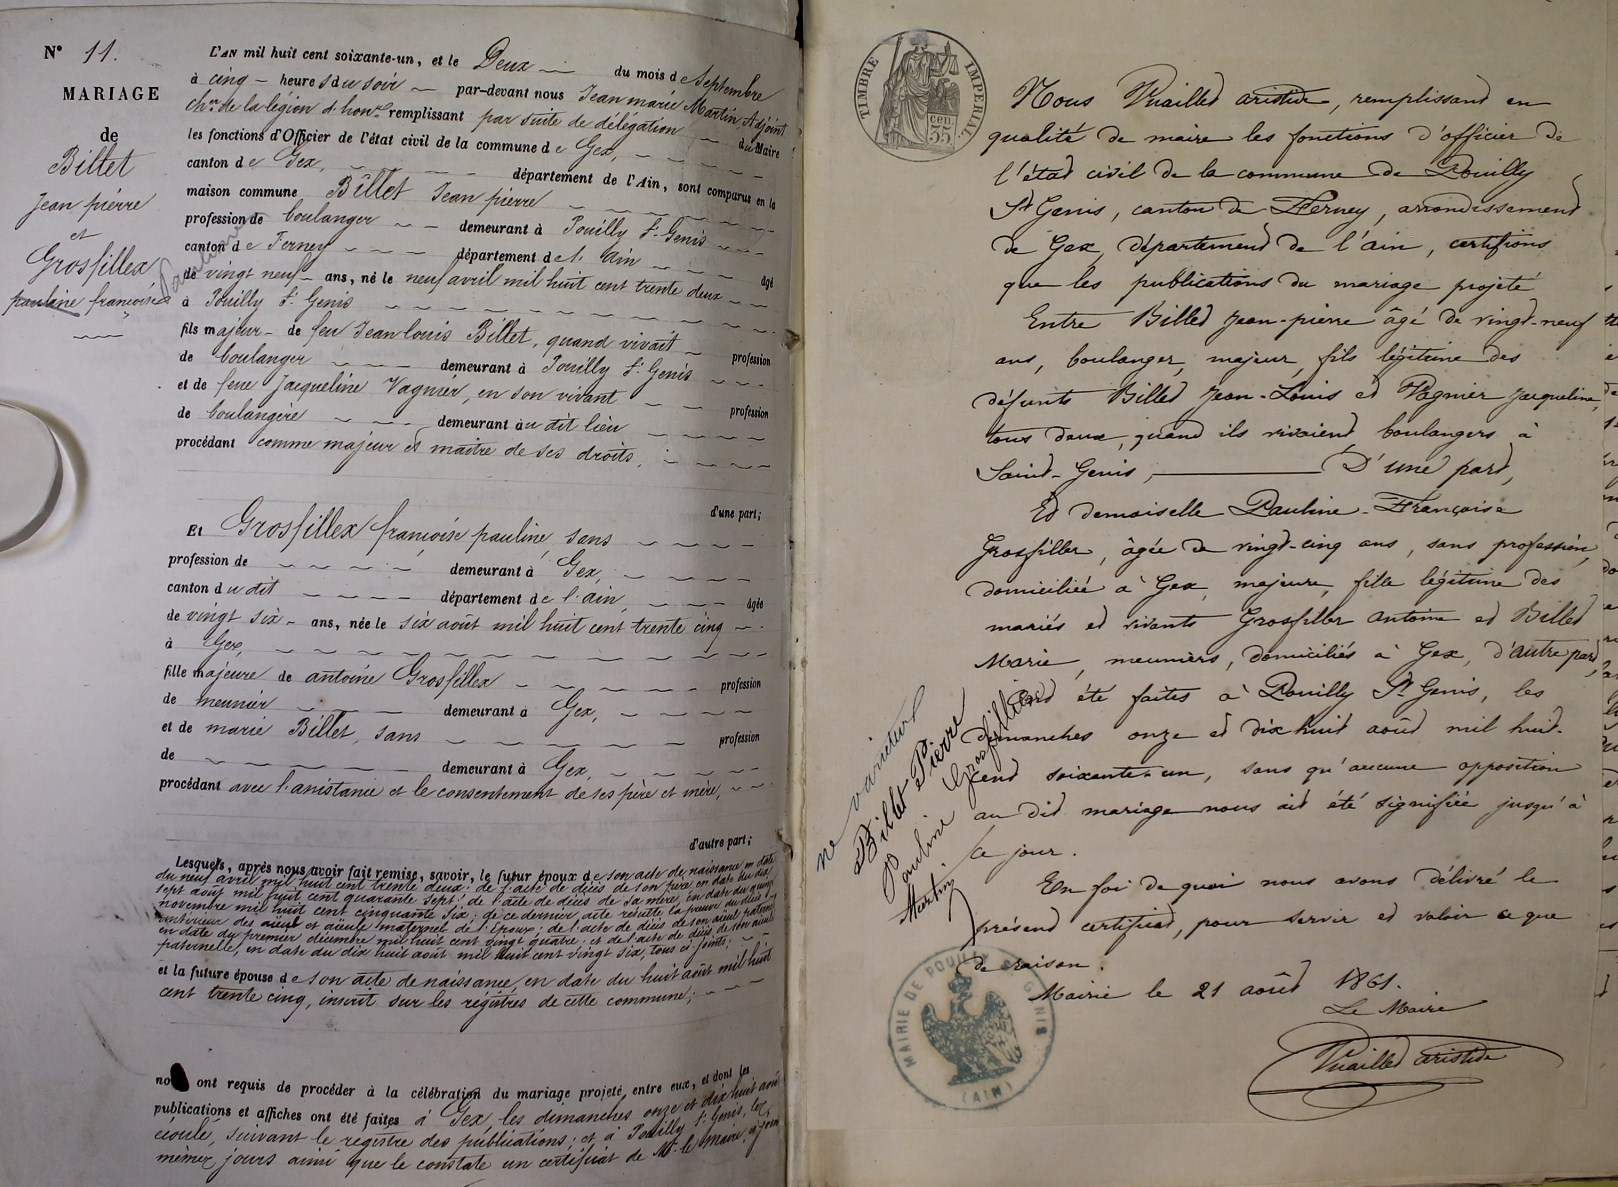 N° 11.
MARIAGE
de
Billet
Jean pierre
et
Grosfillex
pauline françoise
Pauline
L'AN mil huit cent soixante-un, et le Deux du mois de Septembre
à cinq heures du soir par-devant nous Jean marie Martin, Adjoint
chr. de la légion d'honr. remplissant par suite de délégation du Maire
les fonctions d'Officier de l'état civil de la commune de Gex,
canton de Gex, département de l'Ain, sont comparus en la
maison commune Billet Jean pierre
profession de boulanger demeurant à Pouilly St. Genis
canton de Ferney département de l'ain âgé
de vingt neuf ans, né le neuf avril mil huit cent trente deux
à Pouilly St. Genis
fils majeur de feu Jean louis Billet, quand vivait profession
de boulanger demeurant à Pouilly St. Genis
et de feue Jacqueline Vagnier, en son vivant profession
de boulangère demeurant au dit lieu
procédant comme majeur et maitre de ses droits,
d'une part;
Et Grosfillex françoise pauline, sans
profession de demeurant à Gex,
canton du dit département de l'ain, âgée
de vingt six ans, née le six août mil huit cent trente cinq
à Gex,
fille majeure de antoine Grosfillex profession
de meunier demeurant à Gex,
et de marie Billet, sans profession
de demeurant à Gex,
procédant avec l'assistance et le consentement de ses père et mère,
d'autre part;
Lesquels, après nous avoir fait remise, savoir, le futur époux de son acte de naissance en date
du neuf avril mil huit cent trente deux; de l'acte de décès de son père, en date du dix
sept août mil huit cent quarante sept; de l'acte de décès de sa mère, en date du quinze
novembre mil huit cent cinquante six; de ce dernier acte résulte la preuve du décès
antérieur des aïeul et aïeule maternel de l'époux; de l'acte de décès de son aïeul paternel
en date du premier décembre mil huit cent vingt quatre; et de l'acte de décès de son aïeule
paternelle, en date du dix huit août mil huit cent vingt six, tous ci joints;
et la future épouse de son acte de naissance, en date du huit août mil huit
cent trente cinq, inscrit sur les régistres de cette commune;
nous ont requis de procéder à la célébration du mariage projeté entre eux, et dont les
publications et affiches ont été faites à Gex, les dimanches onze et dix huit août
écoulé, suivant le registre des publications; et à Pouilly St. Genis, les
mêmes jours ainsi que le constate un certificat de Mr. le Maire, ci joint
TIMBRE IMPERIAL
35 cen.
Nous Vuaillet aristide, remplissant en
qualité de maire les fonctions d'officier de
l'état civil de la commune de Pouilly
St Genis, canton de Ferney, arrondissement
de Gex, département de l'ain, certifions
que les publications du mariage projeté
Entre Billet Jean-pierre âgé de vingt-neuf
ans, boulanger, majeur, fils légitime des
défunts Billet Jean-Louis et Vagnier Jacqueline,
tous deux, quand ils vivaient boulangers à
Saint-Genis, D'une part,
Et demoiselle Pauline-Françoise
Grosfiller, âgée de vingt-cinq ans, sans profession,
domiciliée à Gex, majeure, fille légitime des
mariés et vivants Grosfiller antoine et Billet
Marie, meuniers, domiciliés à Gex, d'autre part,
Ont été faites à Pouilly St Genis, les
dimanches onze et dix huit août mil huit-
cent soixante-un, sans qu'aucune opposition
au dit mariage nous ait été signifiée jusqu'à
ce jour.
En foi de quoi nous avons délivré le
présent certificat, pour servir et valoir ce que
de raison.
Mairie le 21 août 1861.
Le Maire
Vuaillet aristide
ne varietur
Billet Pierre
Pauline Grosfillex
Martin
MAIRIE DE POUILLY ST GENIS
(AIN)